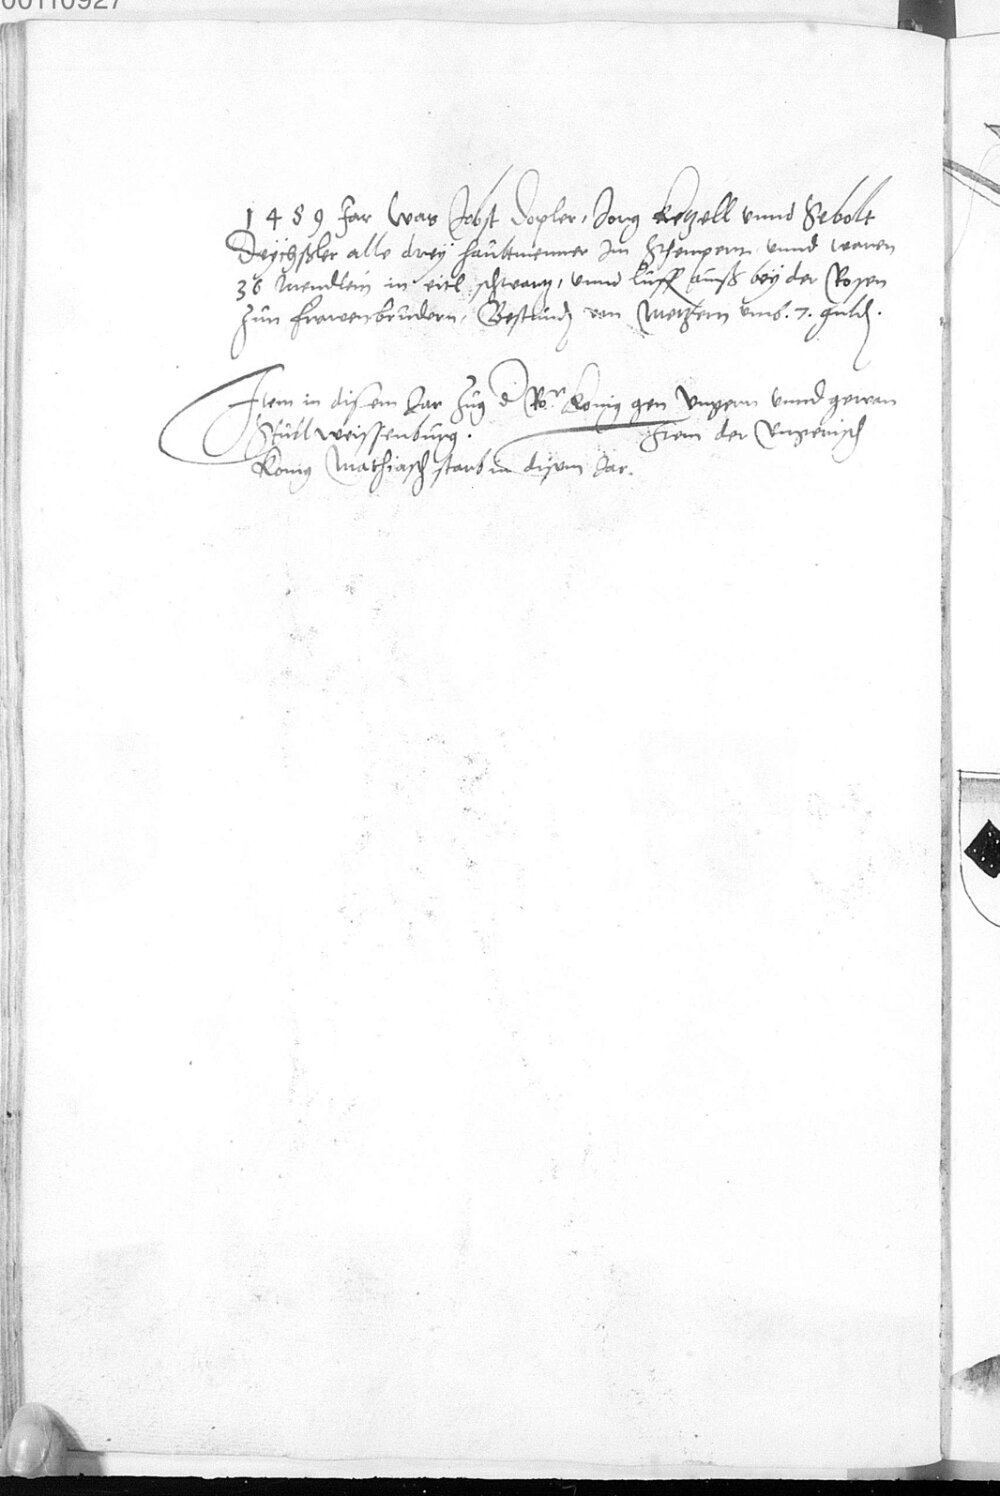 00110927
1489 Jar was Jobst Dopler, Jorg Ketzell vnnd Sebolt
Deychßler alle drey haübtmenner Im Schempern vnnd waren
36 Mendlein in eitl schwartz, vnnd lüff aüß bey der Rosen
Zün frawenbrüdern, Bestünd von Metzlern vmb .7. guld.
Item in disem Jar Züg d Ro.r König gen Vngern vnnd gewan
Stüll weissenbürg. Item der Vngerisch
König Mathiasch starb in disem Jar.